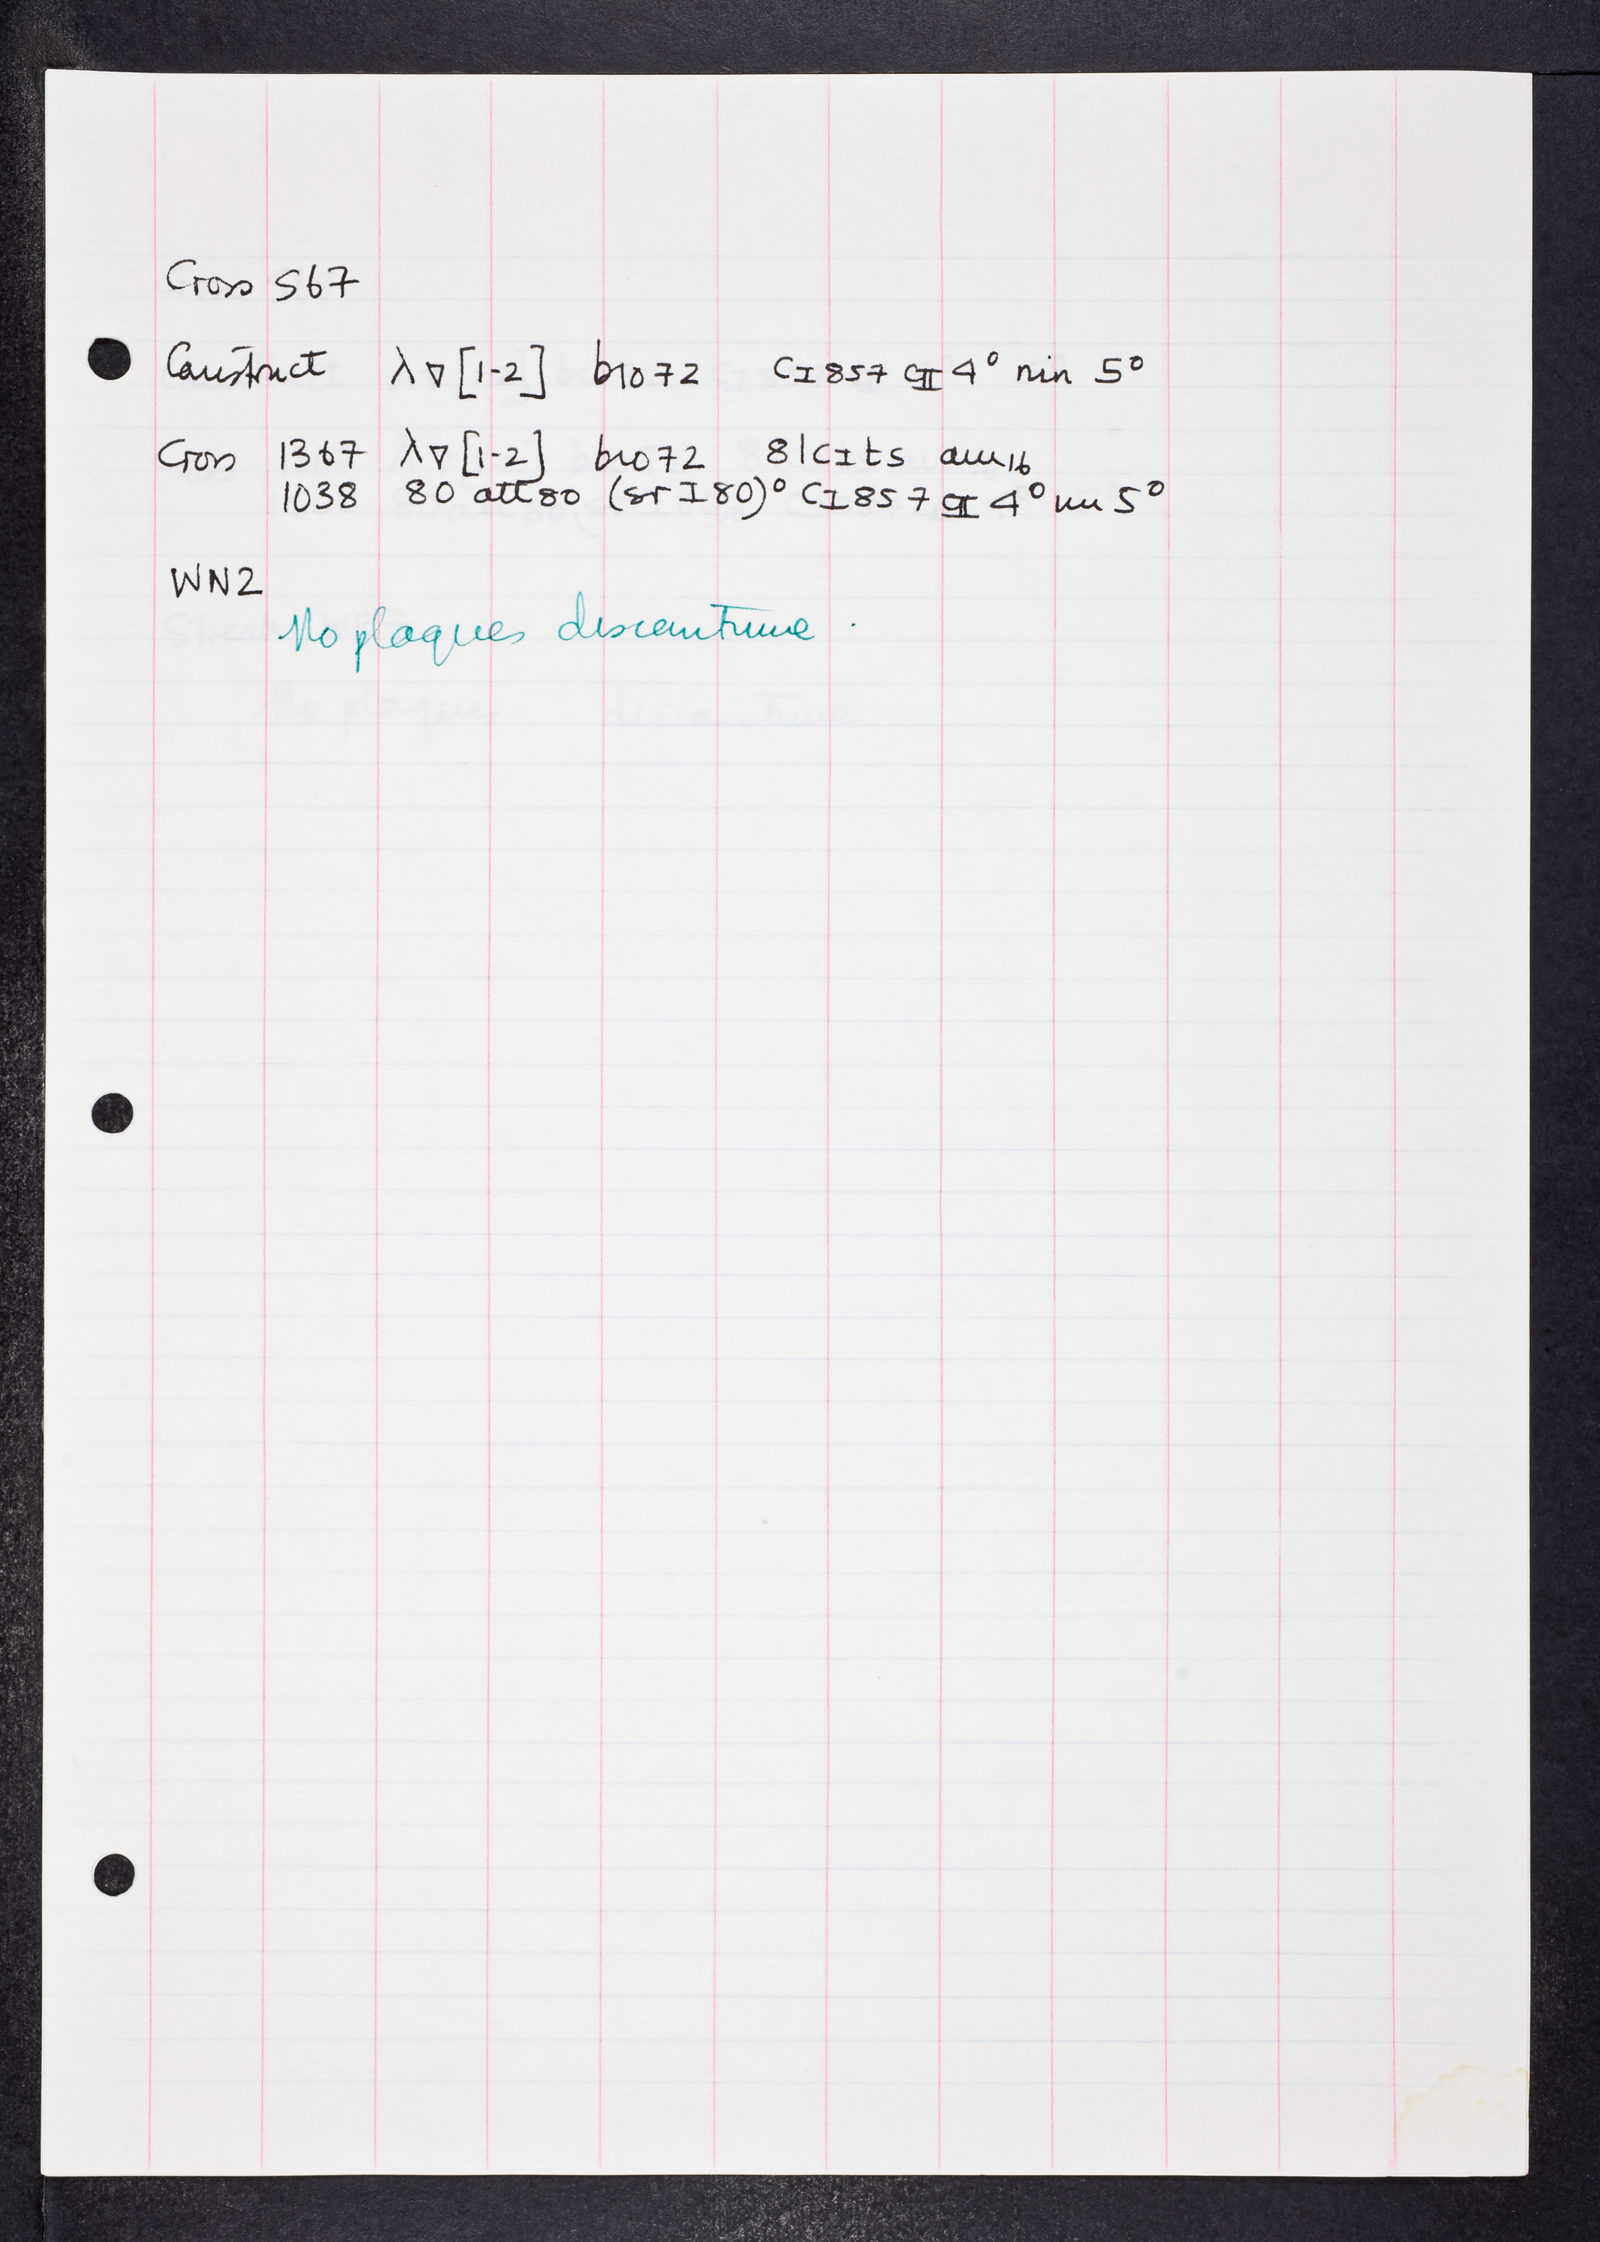 Cross 567
Construct λ∇[1-2] bio72 cI857 cII4° nin 5°
Cross 1367 λ∇[1-2] bio72 81cIts am16
1038 80 att80 (srI80)° cI857 cII4° nin 5°
WN2
No plaques discontinue .